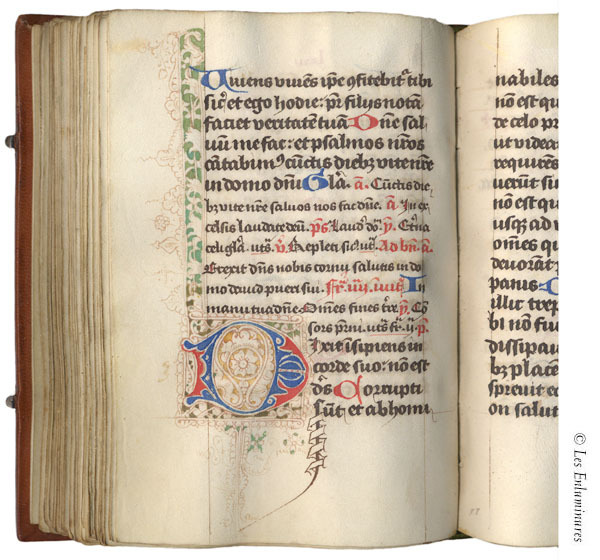 Viuens viuēs ip̄e ꝯfitebitᷣ tibi
sic̄ et ego hodie: pr̄ filijs notā
faciet veritatē tuā Dn̄e sal
uū me fac: et psalmos nr̄os
cātabimꝰ cūctis diebꝫ vite nr̄e
in domo dn̄i Gl̄a. a. Cūctis die
bꝫ vite nr̄e saluos nos fac dn̄e. a. In ex
celsis laudate deū. ps̄ Laud̄ do. y. Et̄na
celi gl̄a. ut s̄. v. Repleti sic̄ ut s̄. Ad bn̄. a.
Erexit dn̄s nobis cornu salutis in do
mo dauid pueri sui. fr̄. iiii. In
manu tua dn̄e. Om̄es fines tr̄e. y. Cō
sors pr̄ni. ut s̄ fr̄. ii. p.
Dixit insipiens in
corde suo: nō est
d̄s Corrupti
sūt et abhomi
nabiles
nō est qu
de celo pr
ut videa
requirēs
uerūt si
nō est
usqꝫ ad v
om̄es qu
deuorāt p
panis
illic trep
bi nō fu
dissipau
bꝫ place
spreuit e
on salut
© Les Enluminures